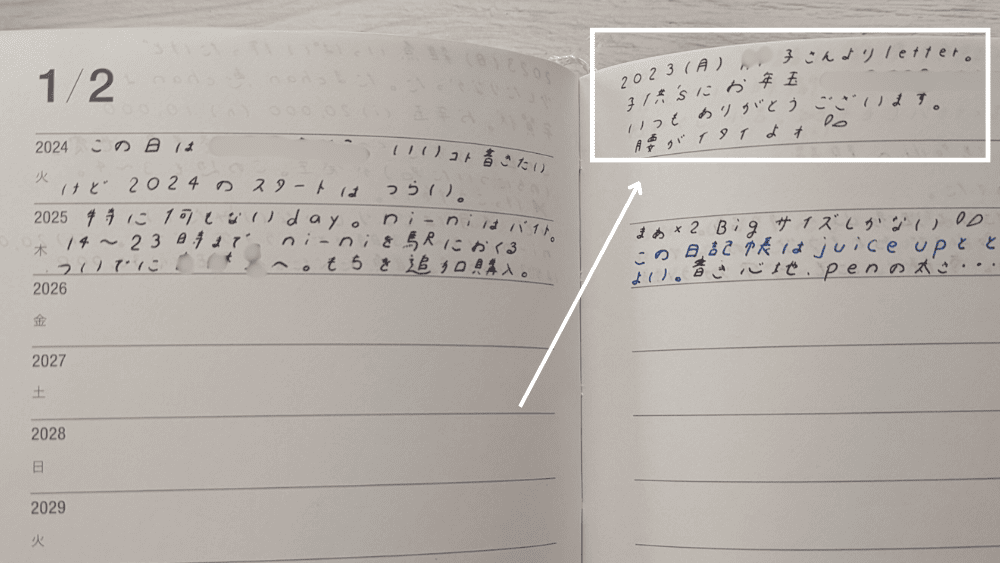 1/2
2024 この日は いいコト書きたい
火 けど2024のスタートは つらい。
2025 特に何もないday。ni-niはバイト。
木 14〜23時まで ni-niを駅におくる
ついでに へ。もちを追加購入。
2026
金
2027
土
2028
日
2029
火
2023(月) 子こんよりletter。
子供'sにお年玉
いつもありがとうございます。
腰がイタイよす
まめ×2 Bigサイズしかない
この日記帳はjuice upとと
よい。書き心地、penの太さ・・・